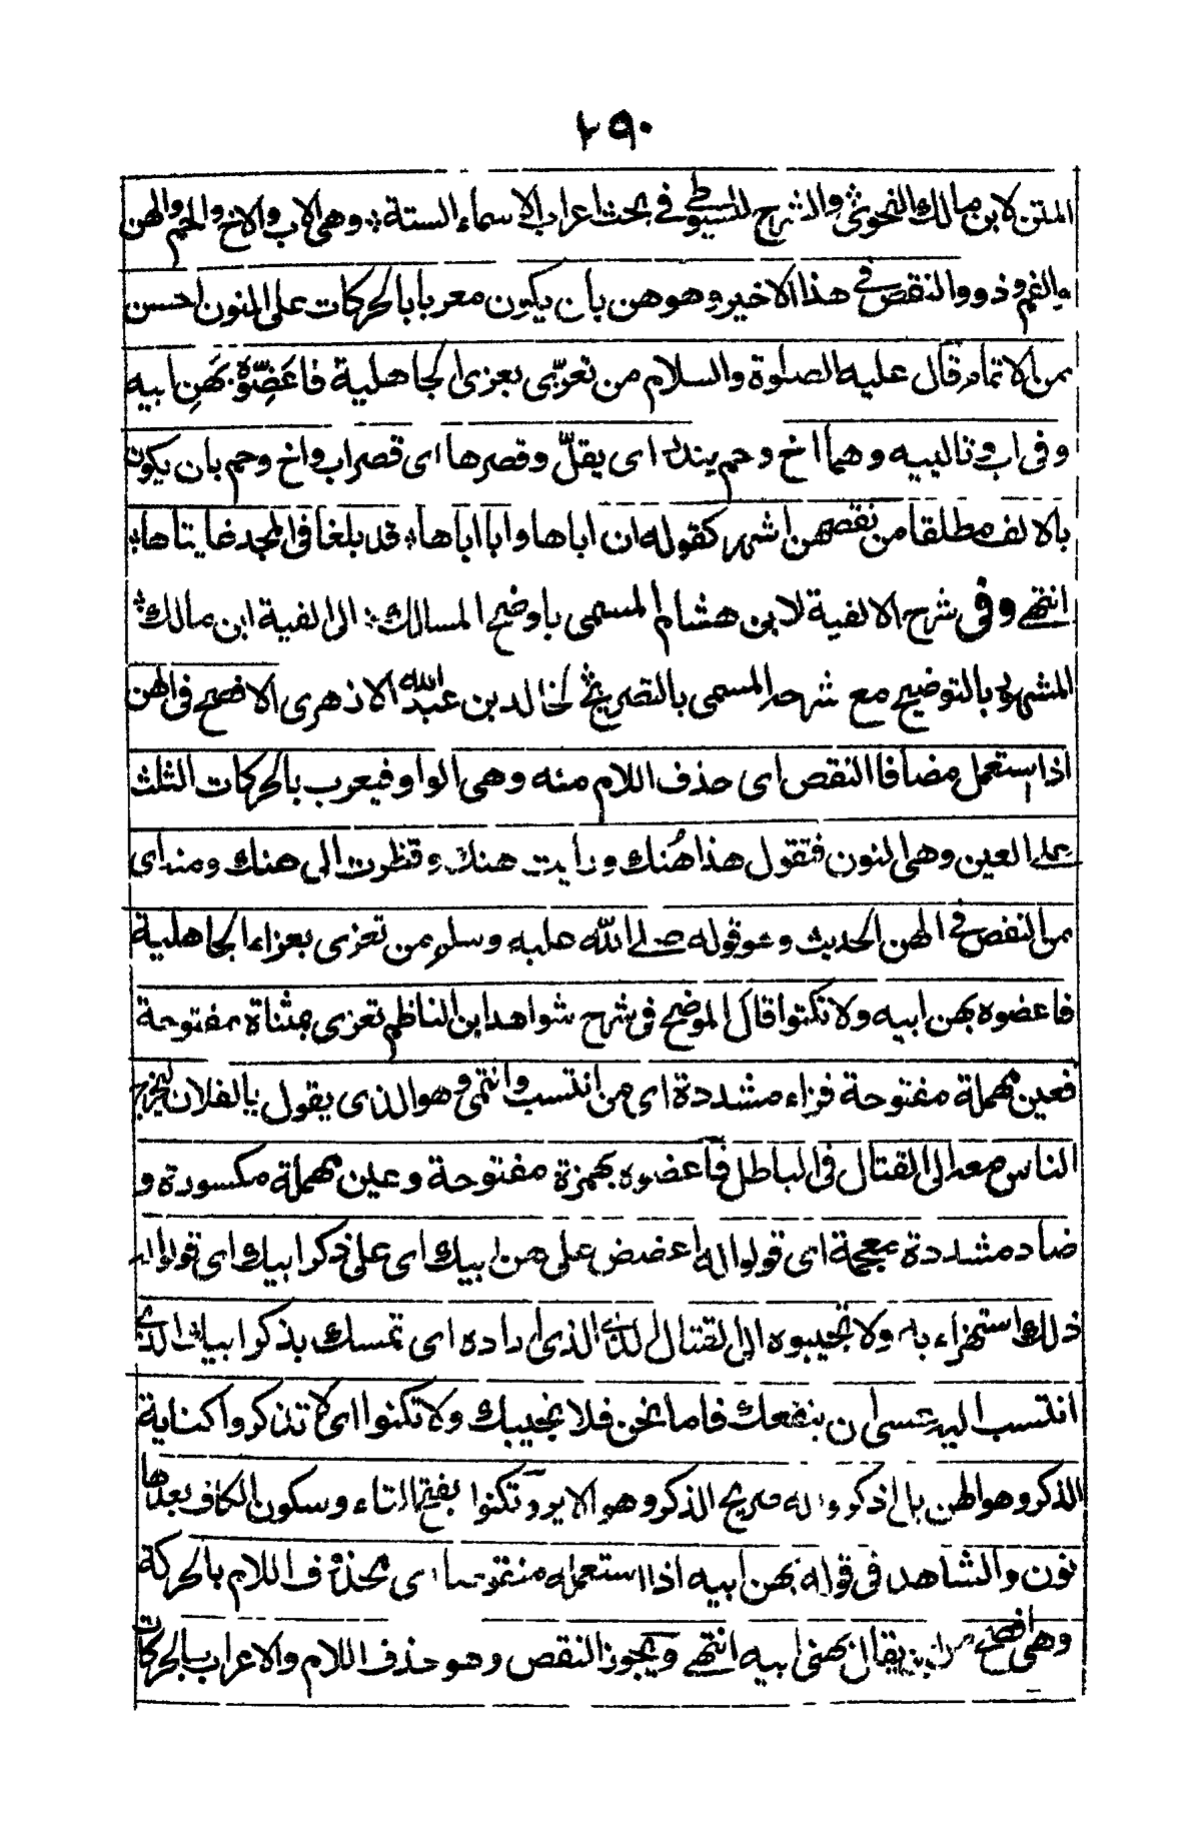 ٢٩٠
المتن لابن مالك النحوى والشرح للسيوطى فى بحث اعراب الاسماء الستة وهى الاب والاخ والحم والهن
والفم وذو والنقص فى هذا الاخير وهو هن بان يكون معربا بالحركات على النون احسن
من الاتمام قال عليه الصلوة والسلام من تعزّى بعزى الجاهلية فاعَضِّوْهُ بَهَنِ ابيه
وفى اب وتالييه وهما اخ وحم يندر اى يقلّ وقصرها اى قصر اب واخ وحم بان يكون
بالالف مطلقا من نقصهن اشهر كقوله ان اباها وابا اباها قد بلغا فى المجد غايتاها
انتهى وفى شرح الالفية لابن هشام المسمى باوضح المسالك الى الفية ابن مالك
المشهور بالتوضيح مع شرحه المسمى بالتصريح لخالد بن عبد الله الازهرى الافصح فى الهن
اذا استعمل مضافا النقص اى حذف اللام منه وهى الواو فيعرب بالحركات الثلث
على العين وهى النون فتقول هذا هُنك ورايت هنك ونظرت الى هنك ومنه اى
من النقص فى الهن الحديث وهو قوله صلى الله عليه وسلم من تعزى بعزاء الجاهلية
فاعضوه بهن ابيه ولا تكنوا قال الموضح فى شرح شواهد ابن الناظم تعزى بمثناة مفتوحة
فعين مهملة مفتوحة فزاء مشددة اى من انتسب وانتمى وهو الذى يقول يا لفلان ليخرج
الناس معه الى القتال فى الباطل فأعضوه بهمزة مفتوحة وعين مهملة مكسورة و
ضاد مشددة معجمة اى قولوا له اعضض على هن ابيك اى على ذكر ابيك اى قولوا له
ذلك استهزاء به ولا تجيبوه الى القتال الذى اراده اى تمسك بذكر ابيك الذى
انتسب اليه عسى ان ينفعك فاما نحن فلا نجيبك ولا تكنوا اى لا تذكروا كناية
الذكر وهو الهن بل اذكروا له صريح الذكر وهو الاير وتكنوا بفتح التاء وسكون الكاف بعدها
نون والشاهد فى قوله بهن ابيه اذ استعمله منقوصا اى محذوف اللام بالحركة
وهى افصح من ان يقال بهنى ابيه انتهى ويجوز النقص وهو حذف اللام والاعراب بالحركات